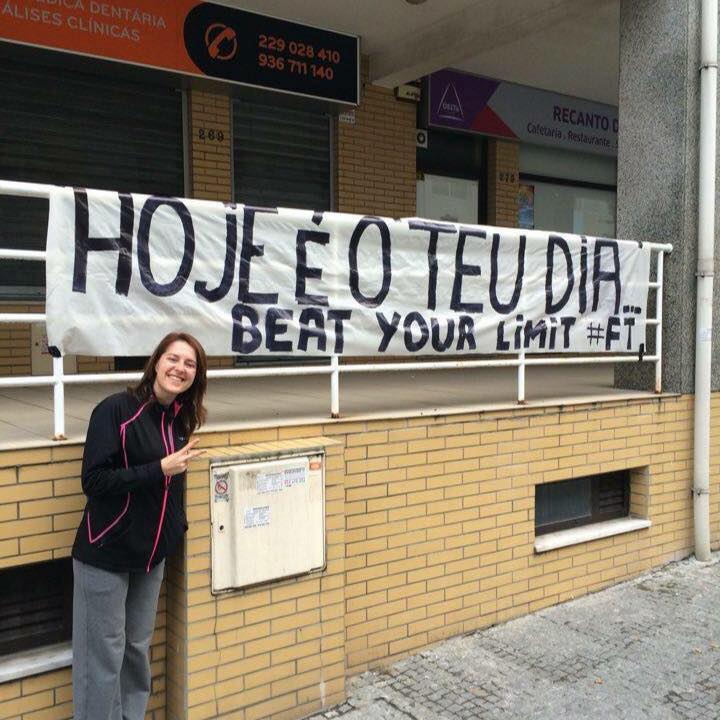 DICA DENTÁRIA
ÁLISES CLÍNICAS
229 028 410
936 711 140
269
DELTA
RECANTO D
Cafetaria . Restaurante .
275
HOJE É O TEU DIA...
BEAT YOUR LIMIT #FT